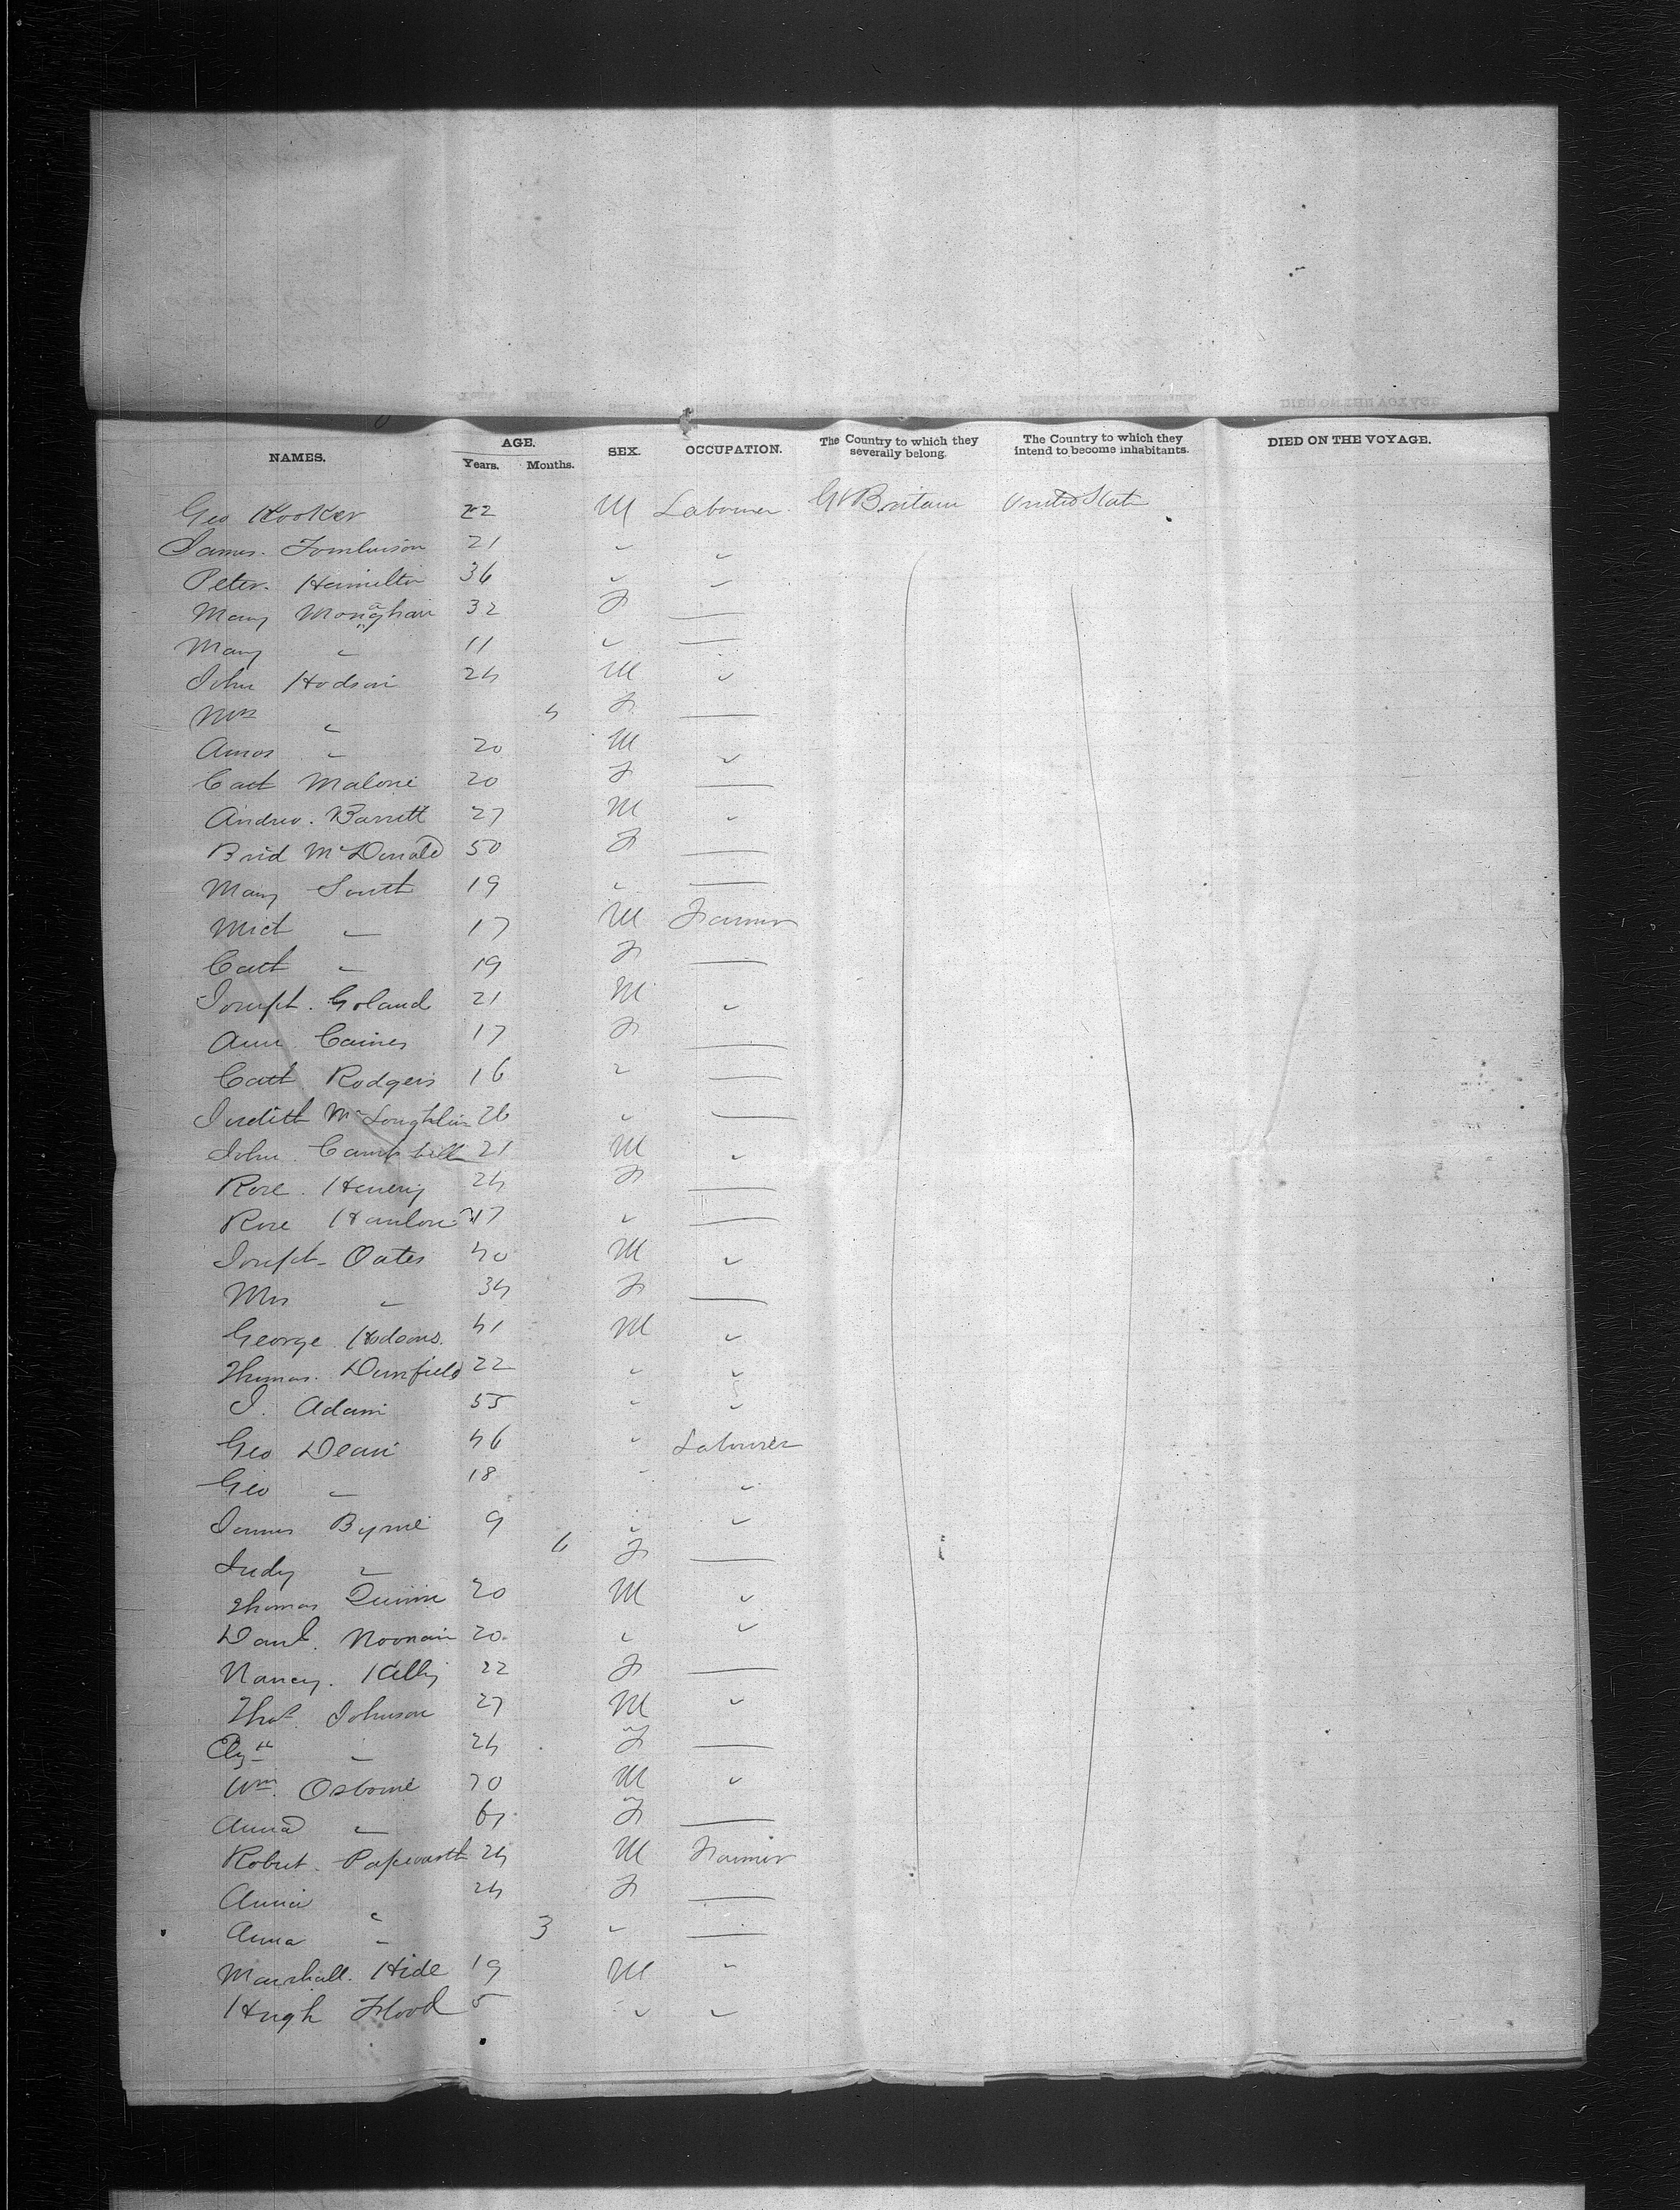 NAMES. AGE. Years. Months. SEX. OCCUPATION. The Country to which they severally belong. The Country to which they intend to become inhabitants. DIED ON THE VOYAGE.
Geo Hooker 22 M Labourer Gt Britain United State
James. Tomlinson 21 " "
Peter. Hamilton 36 " "
Mary Monaghan 32 F —
Mary " 11 " —
John Hodson 24 M "
" 4 F —
Amos " 20 M "
Cath Malone 20 F —
Andrew. Barrett 27 M "
Brid McDonald 50 F —
Mary 19 " —
Mich " 17 M Farmer
Cath " 19 F —
Joseph. Goland 21 M "
Ann Caines 17 F —
Cath Rodgers 16 " —
Judith McLoughlin 26 " —
John Campbell 21 M "
Rose. Henery 24 F —
Rose Hanlon 17 " —
Joseph Oates 40 M "
Mrs " 34 F —
George Hodsons. 41 M "
Thomas. Dunfield 22 " "
J. Adam 55 " "
Geo Dean 46 " Labourer
Geo " 18 " "
James Byrne 9 " "
Judy " 6 F —
Thomas Quinn 20 M "
Danl. Noonan 20 " "
Nancy. Kelly 22 F —
Thos. Johnson 27 M "
Elyth " 24 F —
Wm. Osborne 70 M "
Anna " F —
Robert. Papworth 24 M Farmer
Annie " 24 F —
Anna " 3 " —
Marshall. Hide 19 M "
Hugh Flood 5 " "